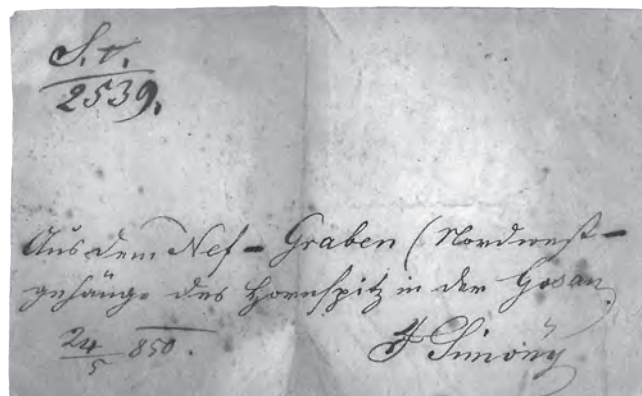 S. v.
2539.
Aus dem Nef - Graben (Nordwest-
gehänge des Hornspitz in der Gosau
24/5 850.
F Simony